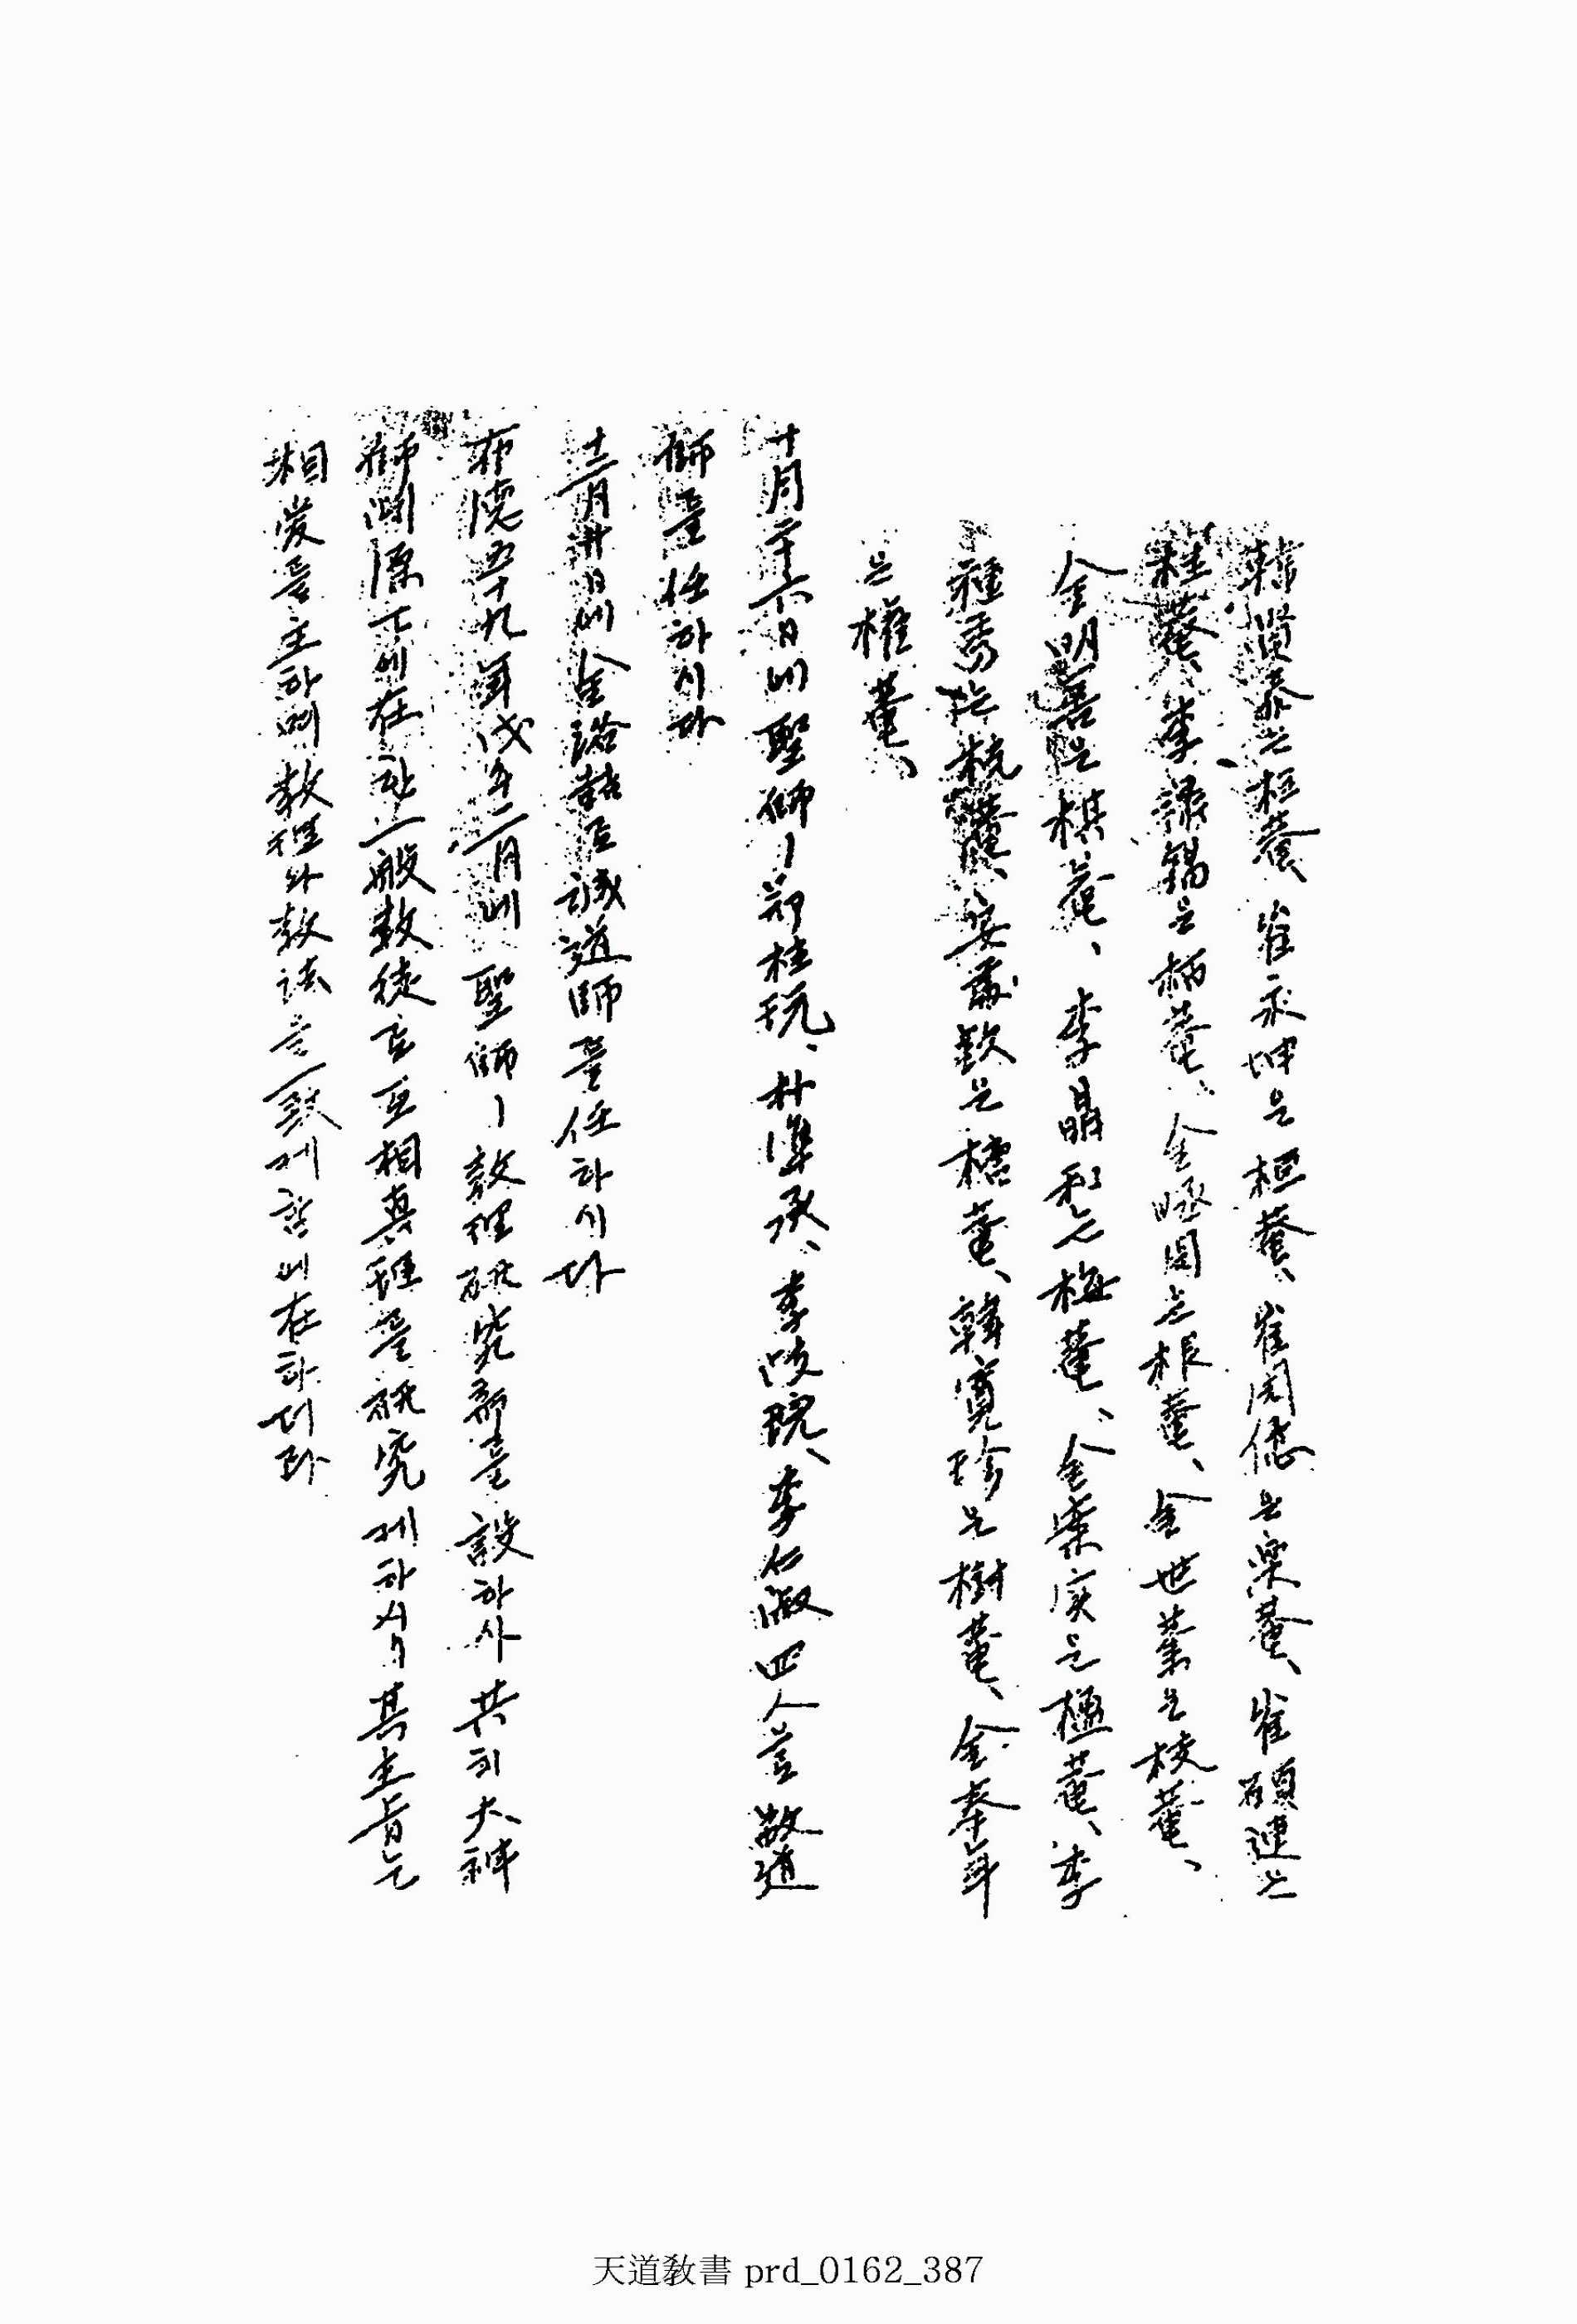 韓賢泰는 枉菴、崔永坤은 桓菴、崔周億은 栗菴、崔碩連은
桂菴、李祿錫은 柄菴、金 圓은 根菴、金世業은 枝菴、
金明善은 棋菴、李晶和는 梅菴、金 實은 極菴、李
種秀는 梡菴、安 欽은 櫓菴、韓寬珍은 樹菴、金奉年
은 權菴、
十月二十六日에 聖師ㅣ 鄭桂玩、朴準承、李 琓、李仁淑四人을 敬道
師를 任하시다
十二月卄日에 金 誥로 誠道師를 任하시다
布德五十九年戊午二月에 聖師ㅣ 敎理硏究部를 設하사 共히 大神
師淵源下에 在한 一般敎徒로 互相眞理를 硏究케 하시니 其主旨는
相愛를 主하며 敎理와 敎法을 一致케 함에 在하더라
天道敎書 prd_0162_387